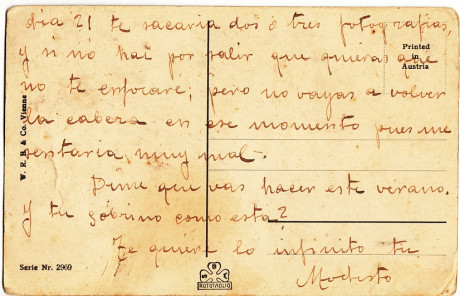 dia 21 te sacaria dos ó tres fotografias,
y si nó hai por salir que quieras que
no te enforare; pero no vayas a volver
la cabera en ese momento pues me
sentaria muy mal.
Dime que vas hacer este verano.
y tu sobrino como esta?
Te quiere lo infinito tu
Modesto
Printed
in
Austria
W. R. B. & Co. Vienne
Serie Nr. 2969
ROTOTAGLIO